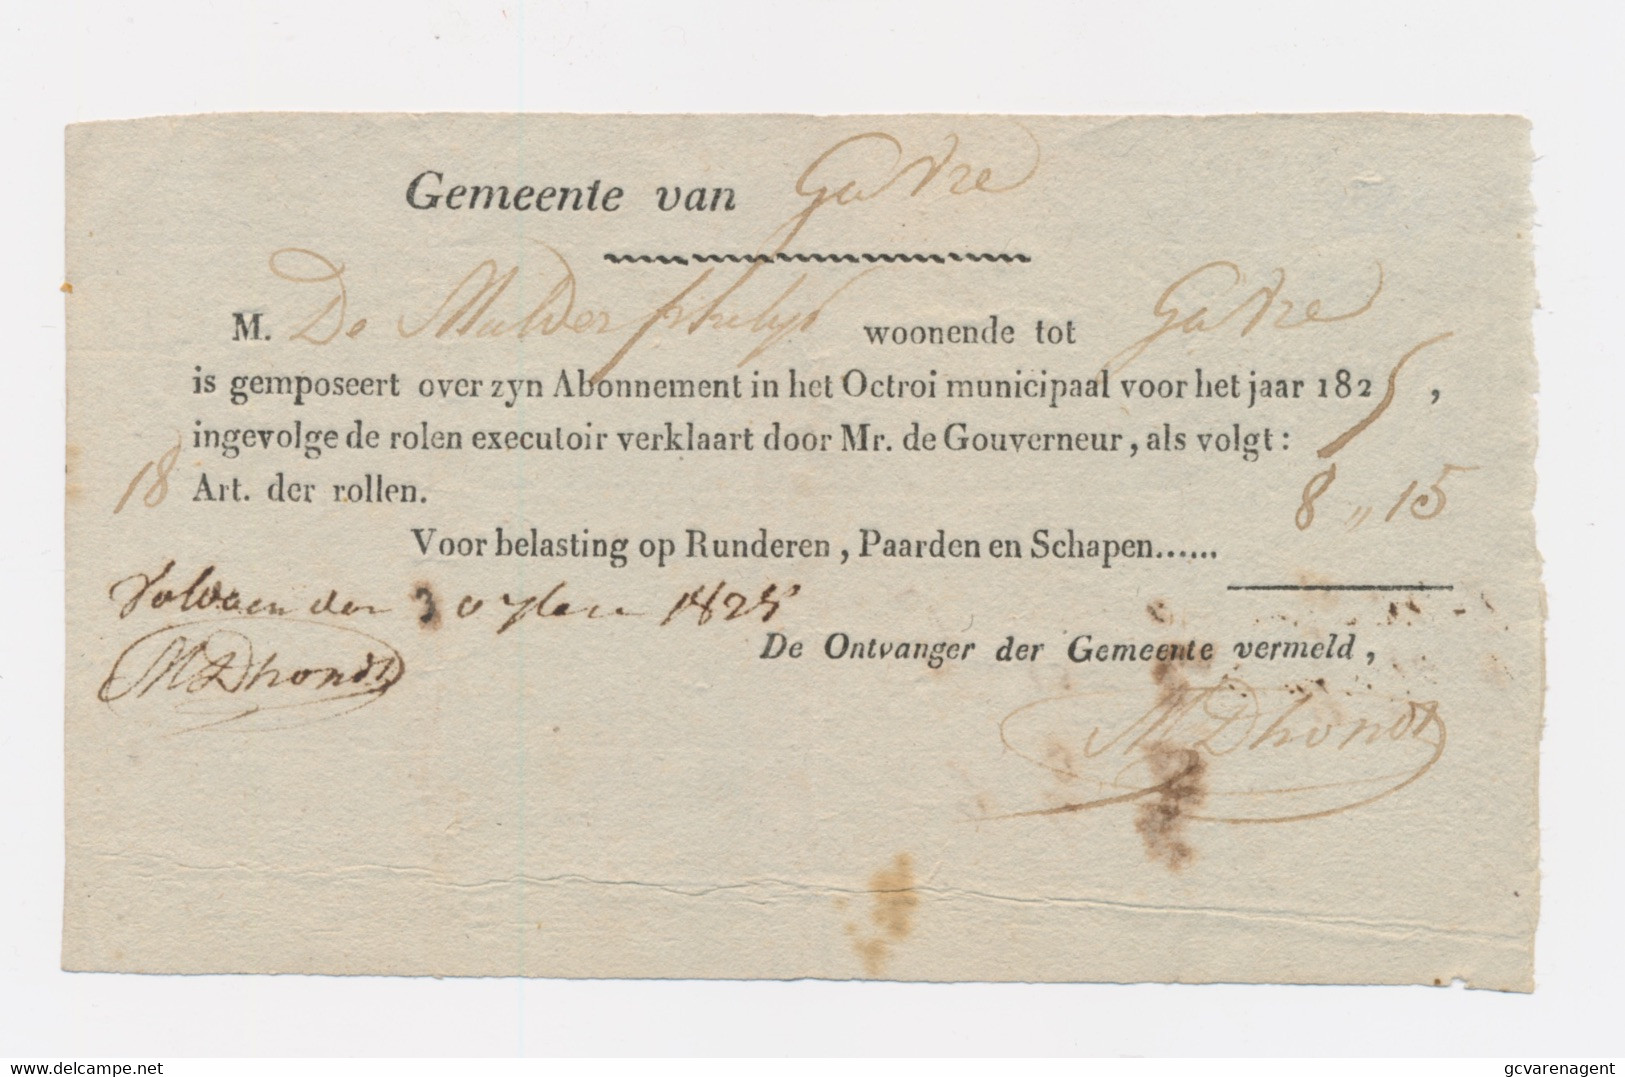 Gemeente van Gavre
M. De Mulder philip woonende tot Gavre
is gemposeert over zyn Abonnement in het Octroi municipaal voor het jaar 1825,
ingevolge de rolen executoir verklaart door Mr. de Gouverneur, als volgt:
18 Art. der rollen.
8 ,, 15
Voor belasting op Runderen, Paarden en Schapen......
Voldaen den 30 1825
De Ontvanger der Gemeente vermeld,
M Dhondt
M Dhondt
www.delcampe.net
gcvarenagent